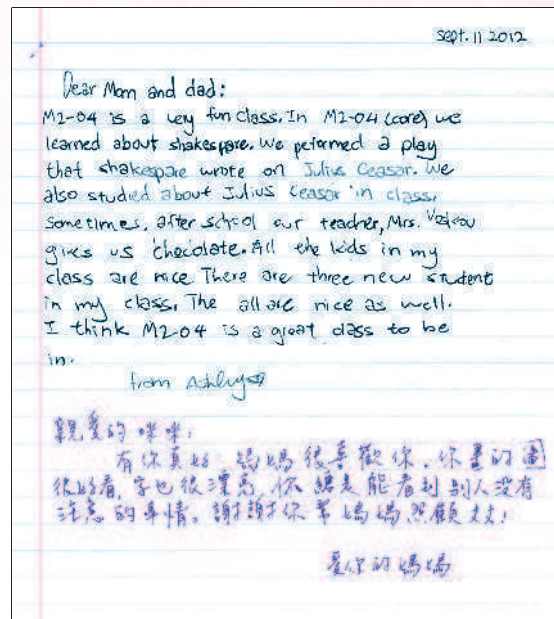 sept. 11 2012
Dear Mom and dad:
M2-04 is a very fun class. In M2-04 (core) we
learned about shakespare. We peformed a play
that shakespare wrote on Julius Ceasar. We
also studied about Julius Ceasar in class.
Sometimes, after school our teacher, Mrs.
gives us chocolate. All the kids in my
class are nice. There are three new student
in my class. The all are nice as well.
I think M2-04 is a great class to be
in.
from Ashley
親愛的咪咪:
有你真好 媽媽很喜歡你. 你畫的圖
很好看, 字也很漂亮, 你總是能看到別人没有
注意的事情。謝謝你幫媽媽照顧丈丈!
愛你的媽媽